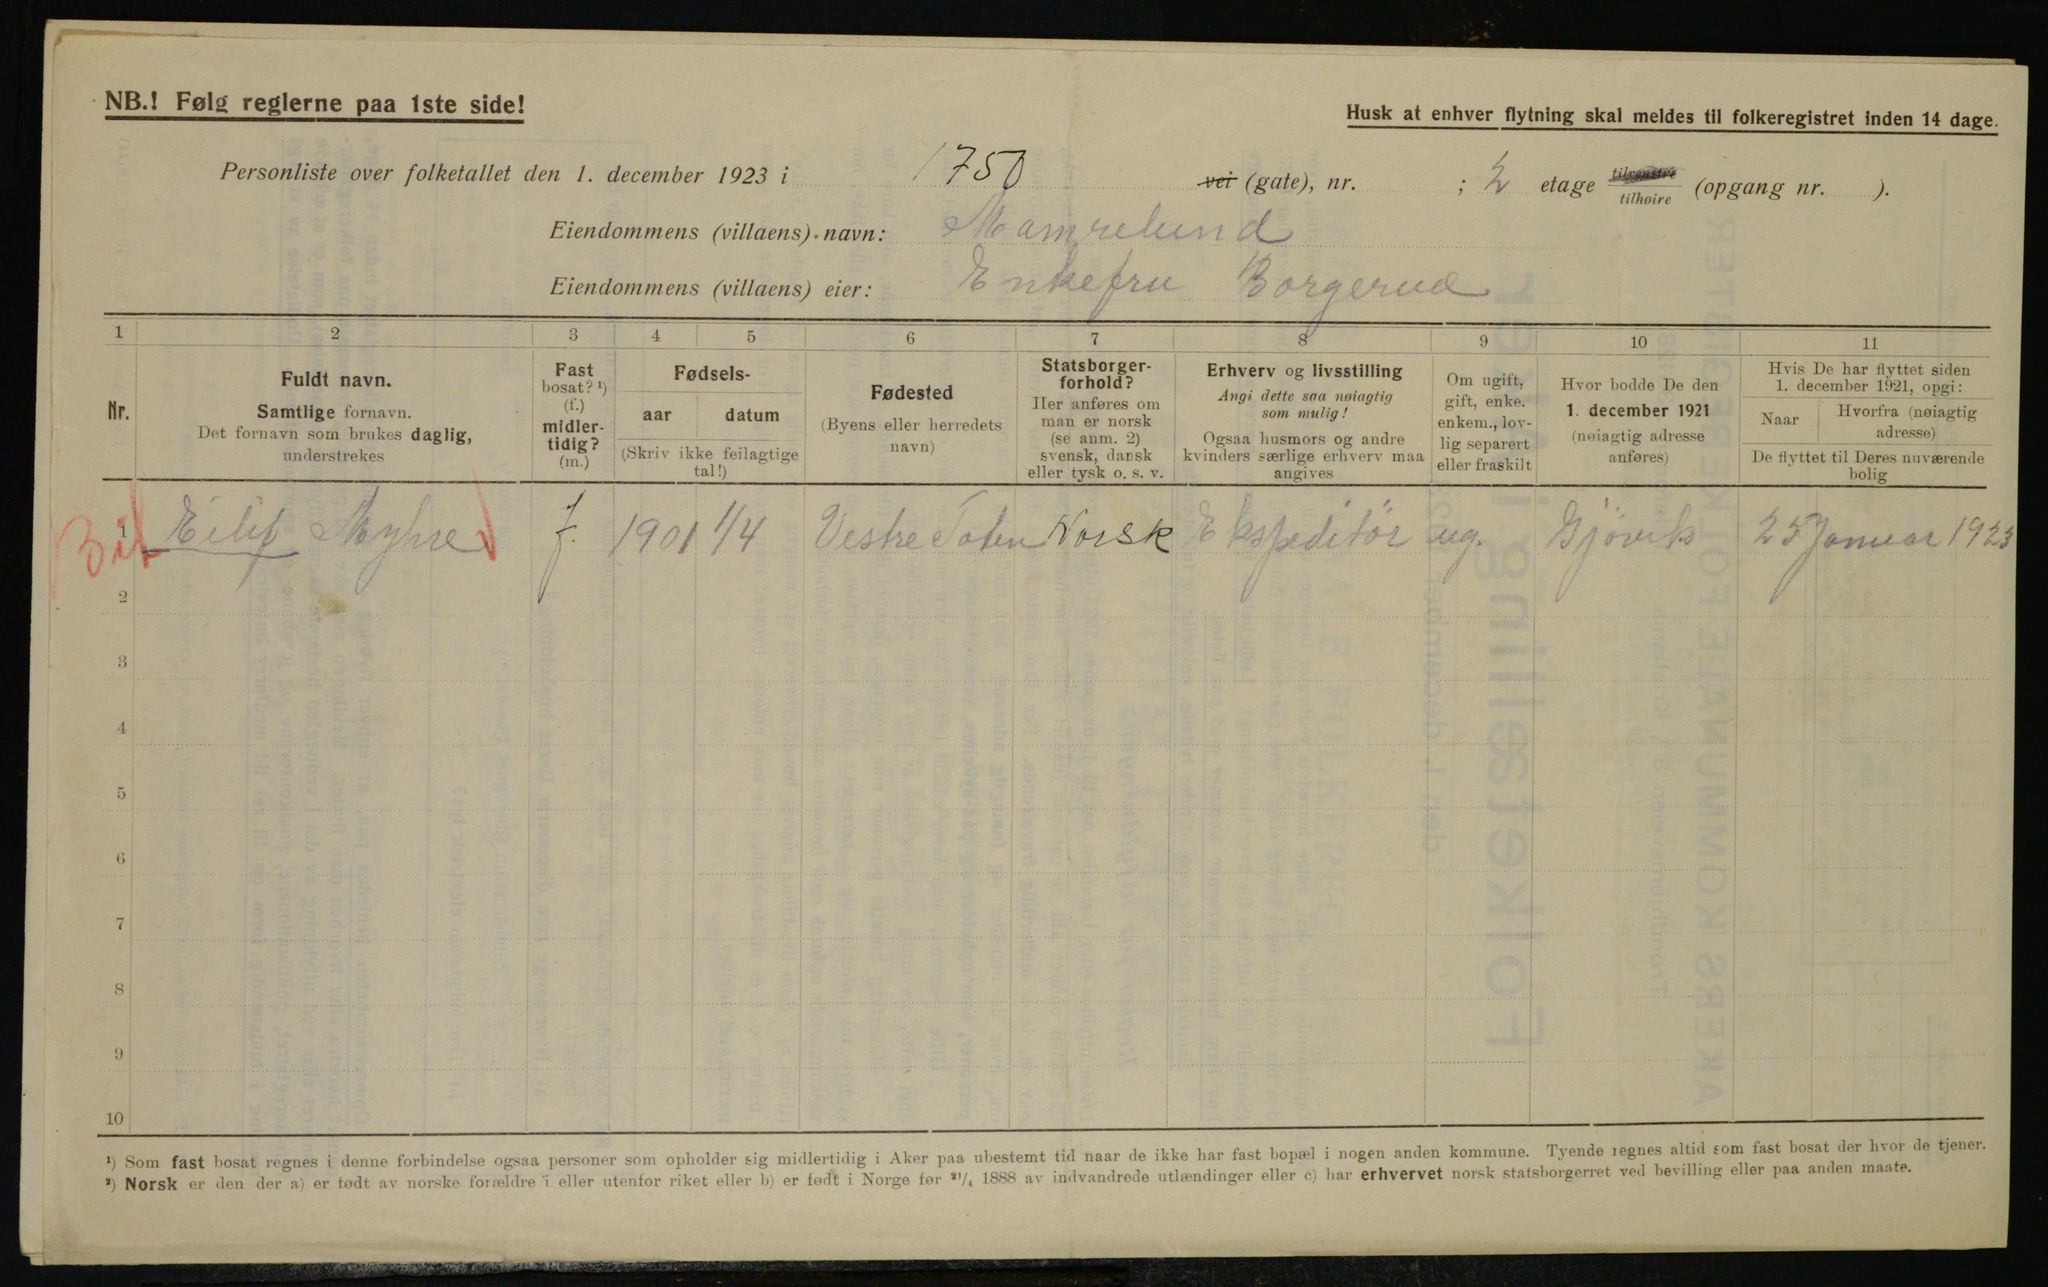 NB.! Følg reglerne paa 1ste side!
Husk at enhver flytning skal meldes til folkeregistret inden 14 dage.
Personliste over folketallet den 1. december 1923 i 1750 vei (gate), nr. ; 2 etage tilvenstre tilhøire (opgang nr. ).
Eiendommens (villaens) navn: Mamrelund
Eiendommens (villaens) eier: Enkefru Borgerud
1 2 3 4 5 6 7 8 9 10 11
Nr.
Fuldt navn.
Samtlige fornavn.
Det fornavn som brukes daglig,
understrekes
Fast
bosat? ¹)
(f.)
midler-
tidig?
(m.)
Fødsels-
aar datum
(Skriv ikke feilagtige
tal!)
Fødested
(Byens eller herredets
navn)
Statsborger-
forhold?
Her anføres om
man er norsk
(se anm. 2)
svensk, dansk
eller tysk o. s. v.
Erhverv og livsstilling
Angi dette saa nøiagtig
som mulig!
Ogsaa husmors og andre
kvinders særlige erhverv maa
angives
Om ugift,
gift, enke.
enkem., lov-
lig separert
eller fraskilt
Hvor bodde De den
1. december 1921
(nøiagtig adresse
anføres)
Hvis De har flyttet siden
1. december 1921, opgi:
Naar Hvorfra (nøiagtig
adresse)
De flyttet til Deres nuværende
bolig
1 Eilif Myhre f. 1901 1/4 Vestre Toten Norsk Ekspeditör ug. Gjövik 25 Januar 1923
2
3
4
5
6
7
8
9
10
¹) Som fast bosat regnes i denne forbindelse ogsaa personer som opholder sig midlertidig i Aker paa ubestemt tid naar de ikke har fast bopæl i nogen anden kommune. Tyende regnes altid som fast bosat der hvor de tjener.
²) Norsk er den der a) er født av norske forældre i eller utenfor riket eller b) er født i Norge før ²¹/₄ 1888 av indvandrede utlændinger eller c) har erhvervet norsk statsborgerret ved bevilling eller paa anden maate.